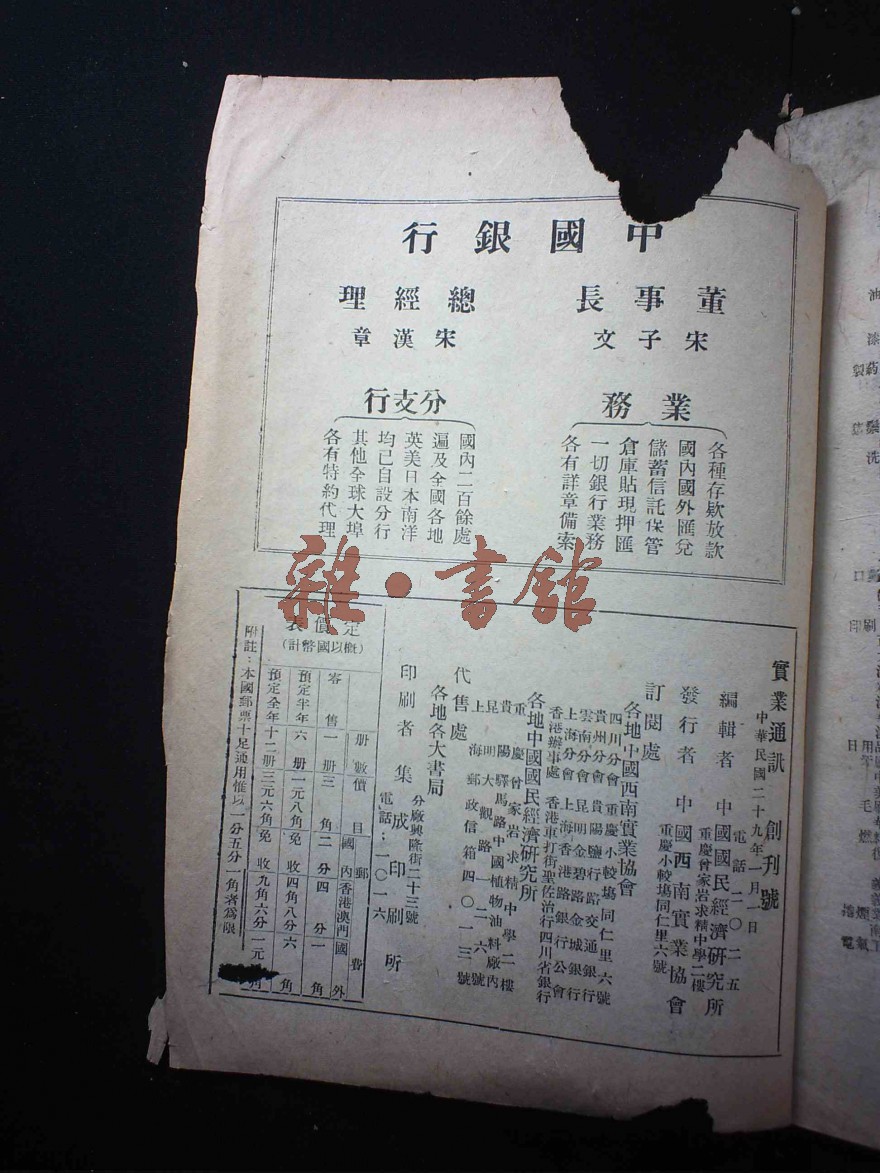 中國銀行
董事長
宋子文
總經理
宋漢章
業務
各種存欵放款
國內國外匯兌
儲蓄信託保管
倉庫貼現押匯
一切銀行業務
各有詳章備索
分支行
國內二百餘處
遍及全國各地
英美日本南洋
均已自設分行
其他全球大埠
各有特約代理
雜·書館
實業通訊 創刊號
中華民國二十九年一月一日
編輯者 中國國民經濟研究所
重慶曾家岩求精中學二樓
電話二〇二五
發行者 中國西南實業協會
重慶小較場同仁里六號
訂閱處
各地中國西南實業協會
四川分會 重慶小較場同仁里六號
貴州分會 貴陽鹽行路交通銀行
雲南分會 昆明金碧路金城銀行
上海分會 上海香港路銀行公會
香港辦事處 香港車打街聖佐治行四川省銀行
各地中國國民經濟研究所
重慶曾家岩求精中學二樓
貴陽驛馬路中國植物油料廠內
昆明大觀路一二六號
上海郵政信箱四〇一三號
代售處
各地各大書局
印刷者 集成印刷所
分廠興隆街二十三號
電話：一〇一六
定價表
(概以國幣計)
冊數 價目 郵費
國內 香港澳門 國外
零售 一冊 三角 二分 四分 一角
預定半年 六冊 一元八角 免收 四角八分 六角
預定全年 十二冊 三元六角 免收 九角六分 一元
附註：本國郵票十足通用惟以一分五分一角者為限